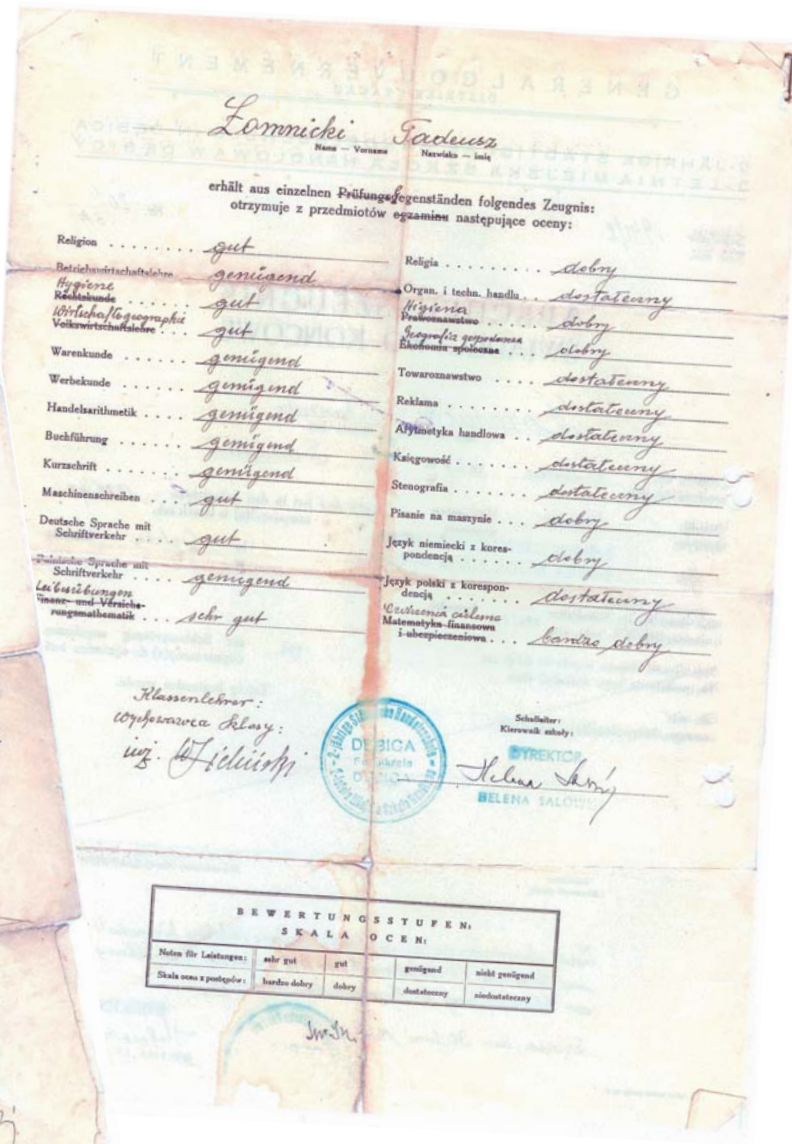 Łomnicki Tadeusz
Name — Vorname Nazwisko — imię
erhält aus einzelnen Prüfungsgegenständen folgendes Zeugnis:
otrzymuje z przedmiotów egzaminu następujące oceny:
Religion ........ gut
Betriebswirtschaftslehre genügend
Hygiene
Rechtskunde gut
Wirtschaftsgeographie
Volkswirtschaftslehre gut
Warenkunde genügend
Werbekunde genügend
Handelsarithmetik genügend
Buchführung genügend
Kurzschrift genügend
Maschinenschreiben gut
Deutsche Sprache mit
Schriftverkehr gut
Polnische Sprache mit
Schriftverkehr genügend
Leibesübungen
Finanz- und Versiche-
rungsmathematik sehr gut
Religia dobry
Organ. i techn. handlu dostateczny
Higiena
Prawoznawstwo dobry
Geografia gospodarcza
Ekonomia społeczna dobry
Towaroznawstwo dostateczny
Reklama dostateczny
Arytmetyka handlowa dostateczny
Księgowość dostateczny
Stenografia dostateczny
Pisanie na maszynie dobry
Język niemiecki z kores-
pondencją dobry
Język polski z korespon-
dencją dostateczny
Ćwiczenia cielesne
Matematyka finansowa
i ubezpieczeniowa bardzo dobry
Klassenlehrer:
wychowawca klasy:
inż.
Schulleiter:
Kierownik szkoły:
DYREKTOR
Helena
HELENA
DĘBICA
BEWERTUNGSSTUFEN:
SKALA OCEN:
Noten für Leistungen: sehr gut gut genügend nicht genügend
Skala ocen z postępów: bardzo dobry dobry dostateczny niedostateczny